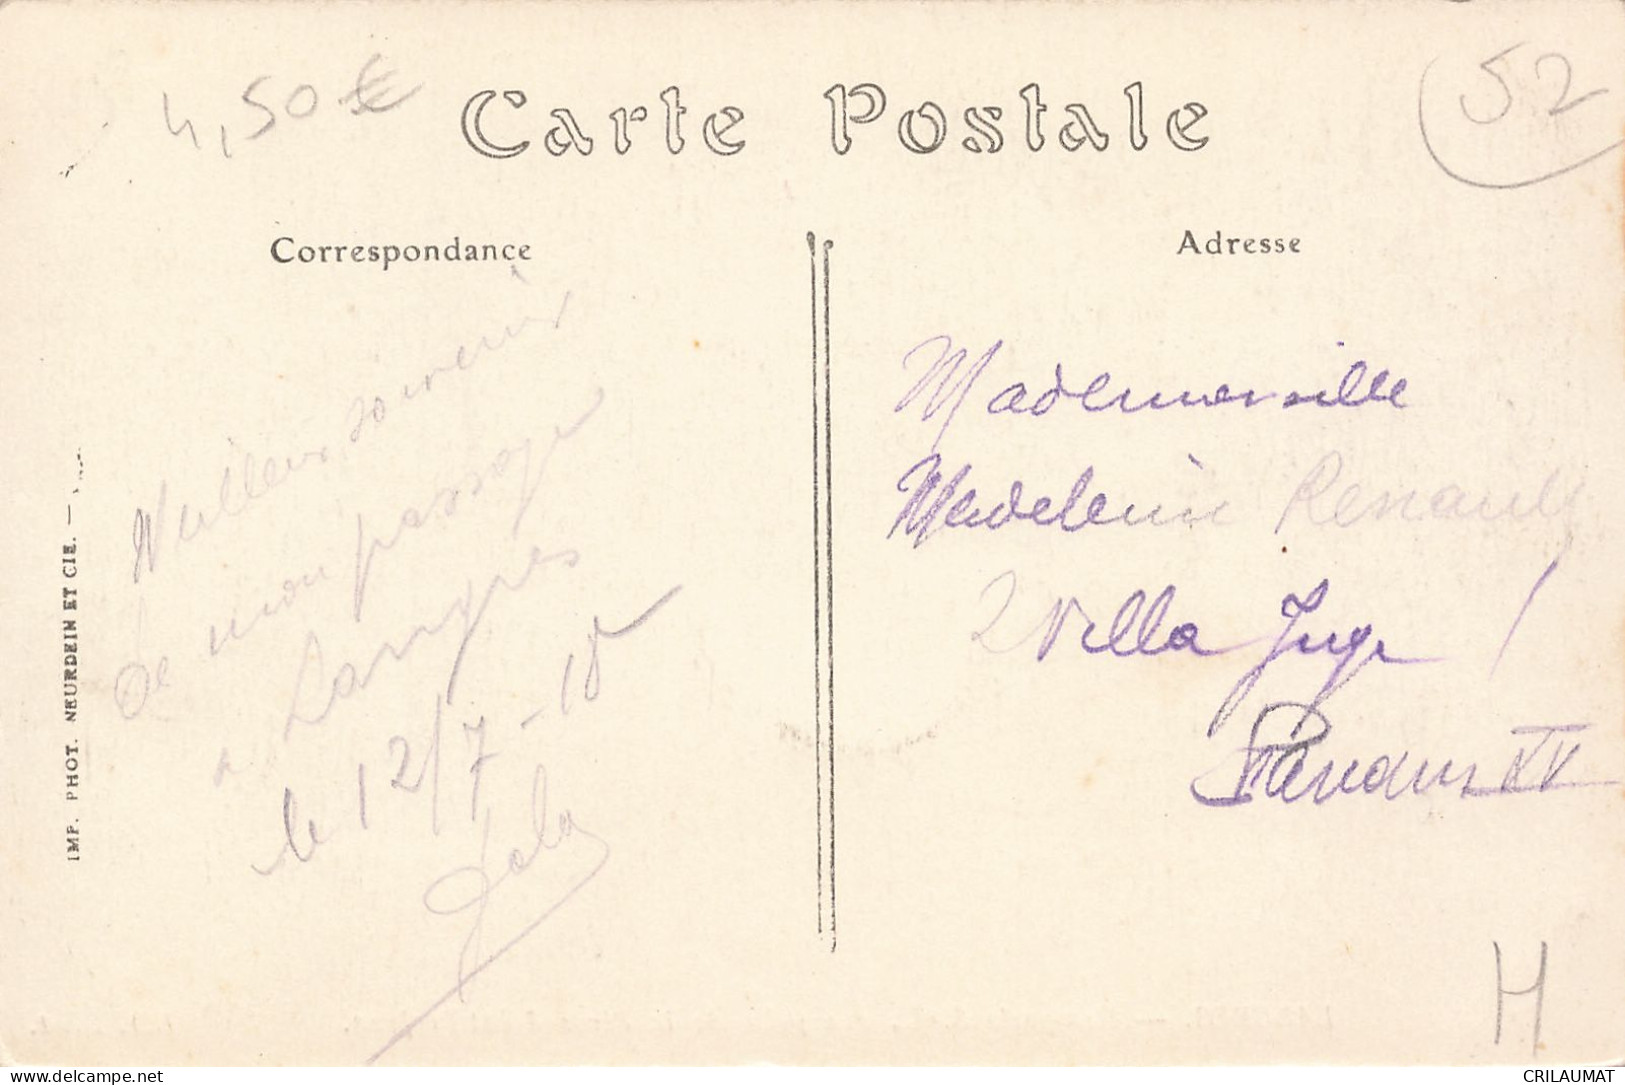 4,50€
Carte Postale
52
Correspondance
Meilleurs souvenirs
de mon passage
a Langres
le 12/7-18
Adresse
Mademoiselle
Madeleine Renault
2 Villa Juge
Paris XV
IMP. PHOT. NEURDEIN ET CIE. —
H
delcampe.net
CRILAUMAT